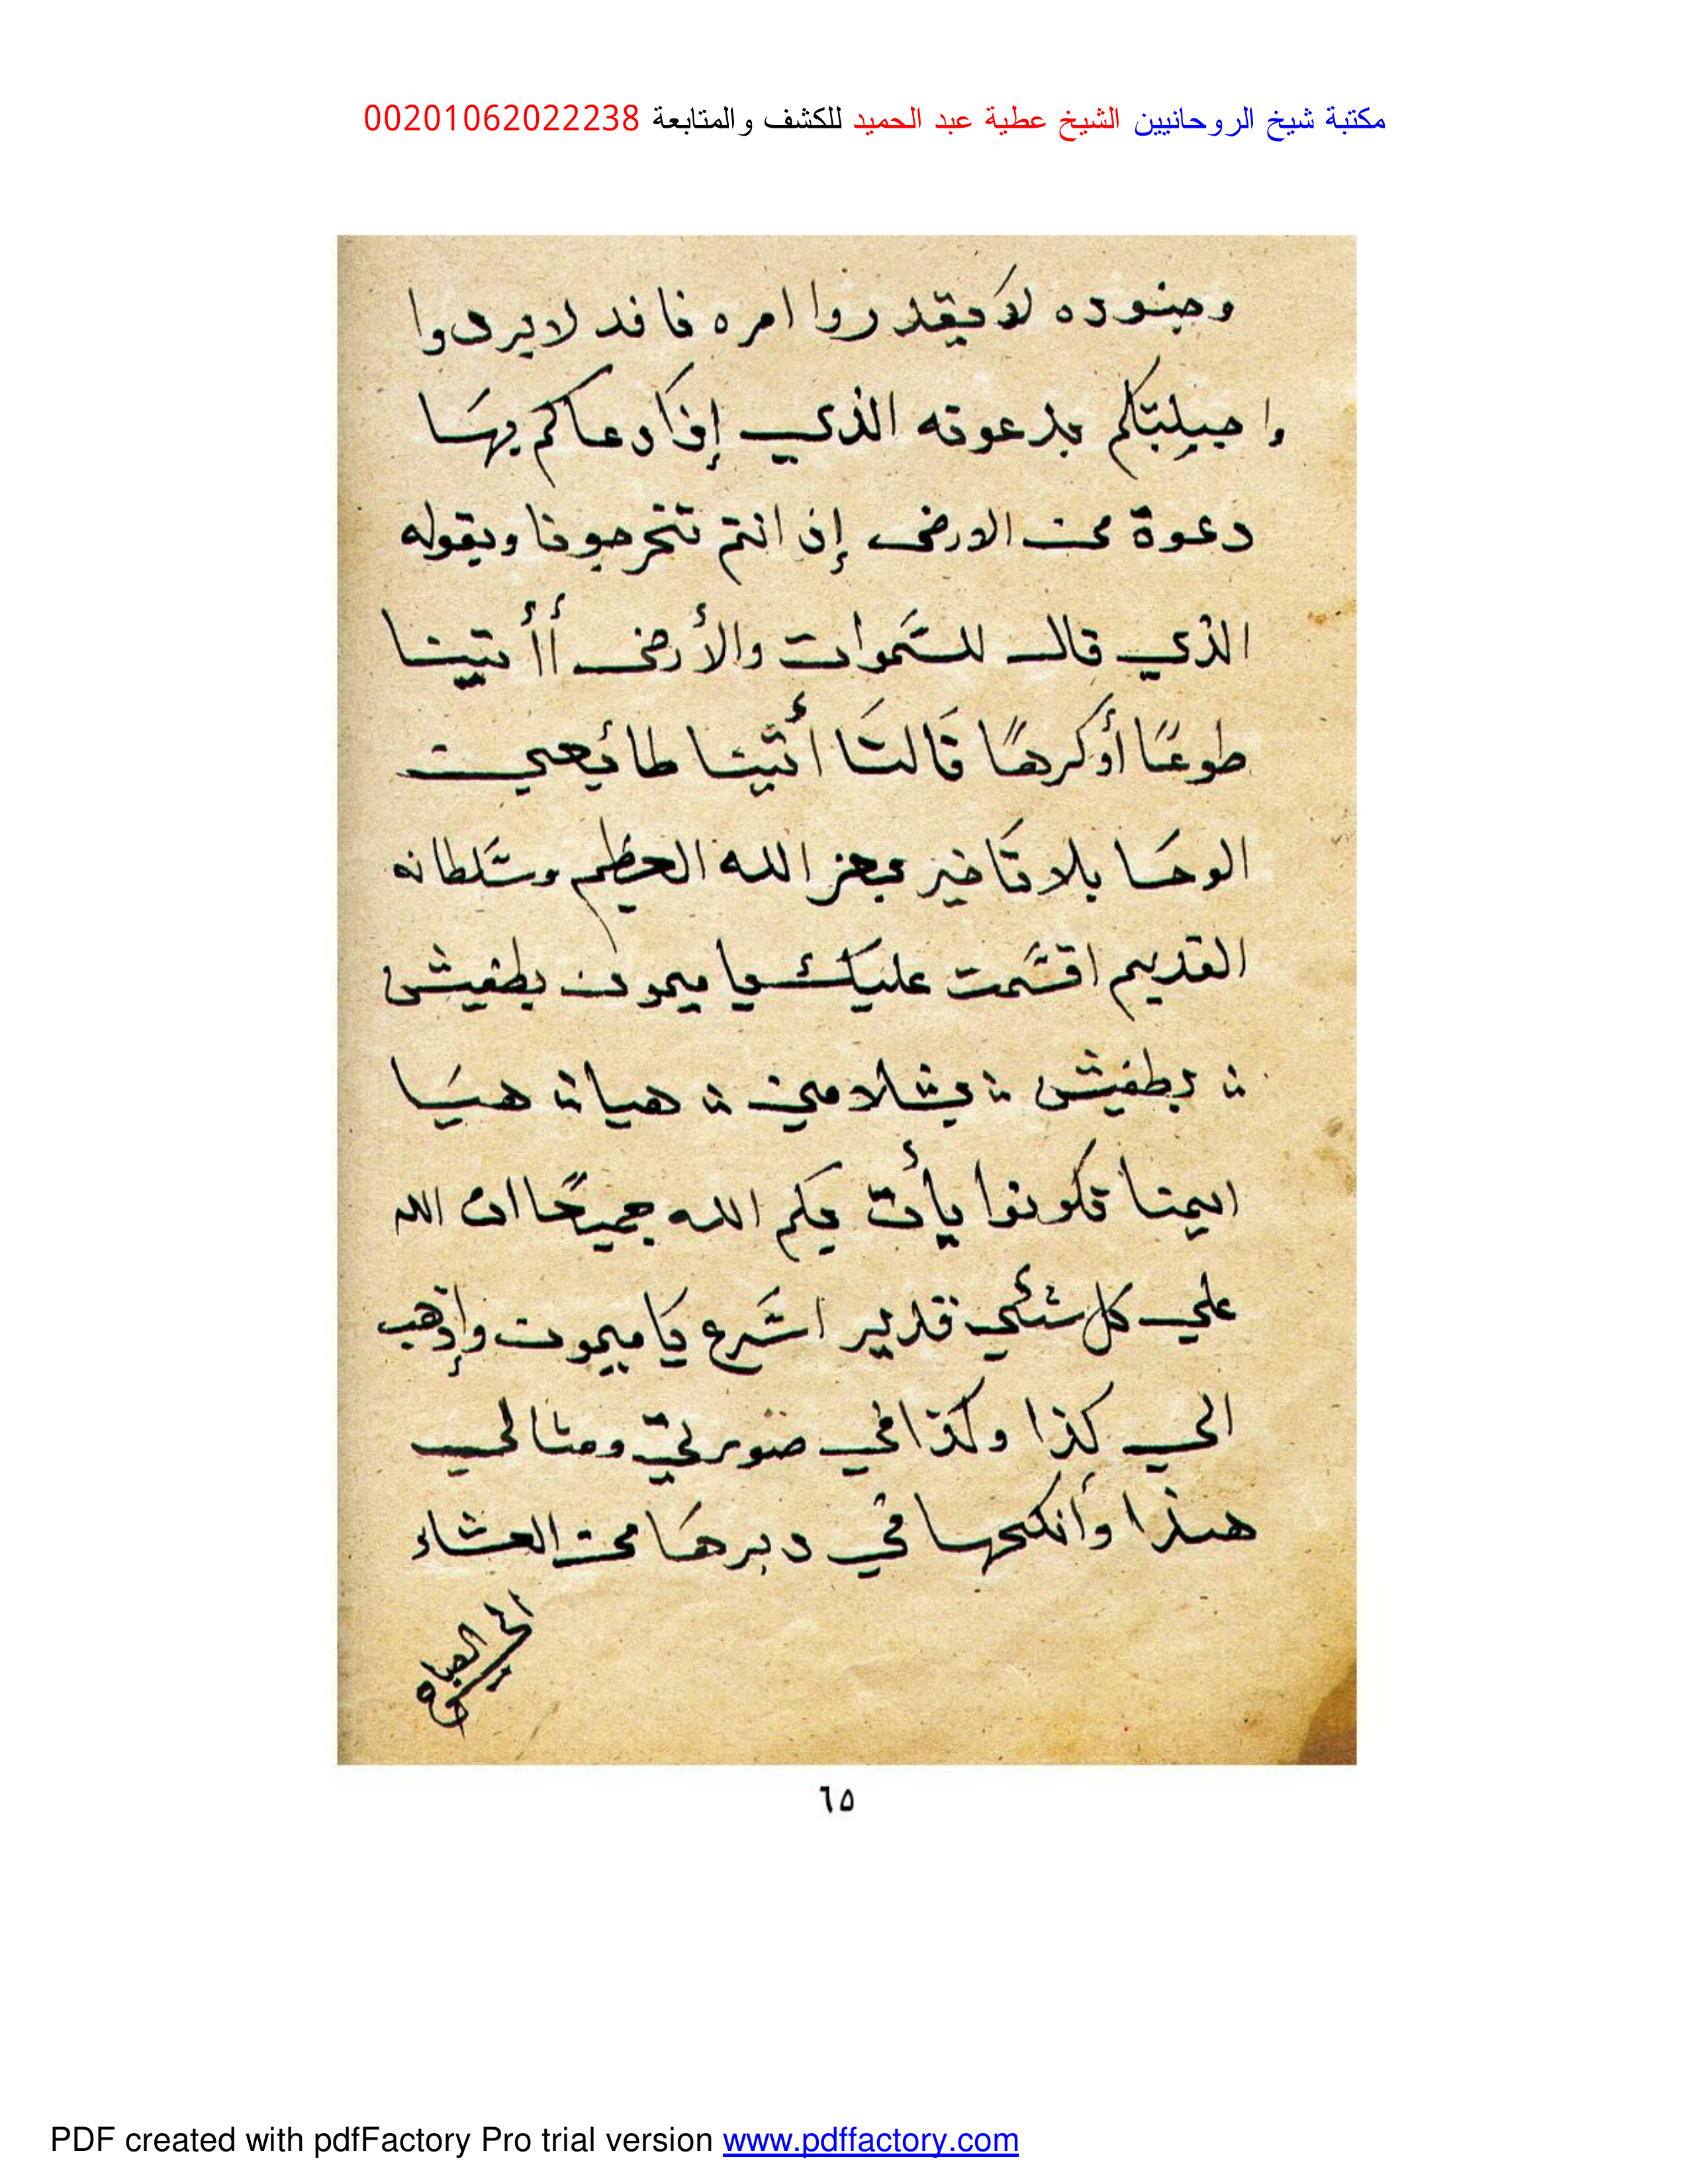 مكتبة شيخ الروحانيين الشيخ عطية عبد الحميد للكشف والمتابعة 00201062022238
وجنوده لا يقدروا امره فا فد لا يردوا
وا جيلبتكم بدعوته الذي إذا دعاكم بها
دعوة من الارض إذ انتم تخرجونا وبقوله
الذي قال للسَّموات والأرض أأتينا
طوعًا أوكرهًا قَالتَا أتينا طائعين
الوحَا بلا تَاخير بعز الله العظيم وسَلطانه
القديم اقسَمت عليك يا ميمون بطفيش
؞ بطفيش ؞ يشلا مين ؞ هيا ؞ هيَا
اينما تكونوا يأت بكم الله جميعًا ان الله
علي كل شئي قدير اسَرع يَا ميمون وإذهب
الي كذا وكذا في صورتي ومثالي
هذا وأنكحها في دبرهَا من العشاء
الي
٦٥
PDF created with pdfFactory Pro trial version www.pdffactory.com